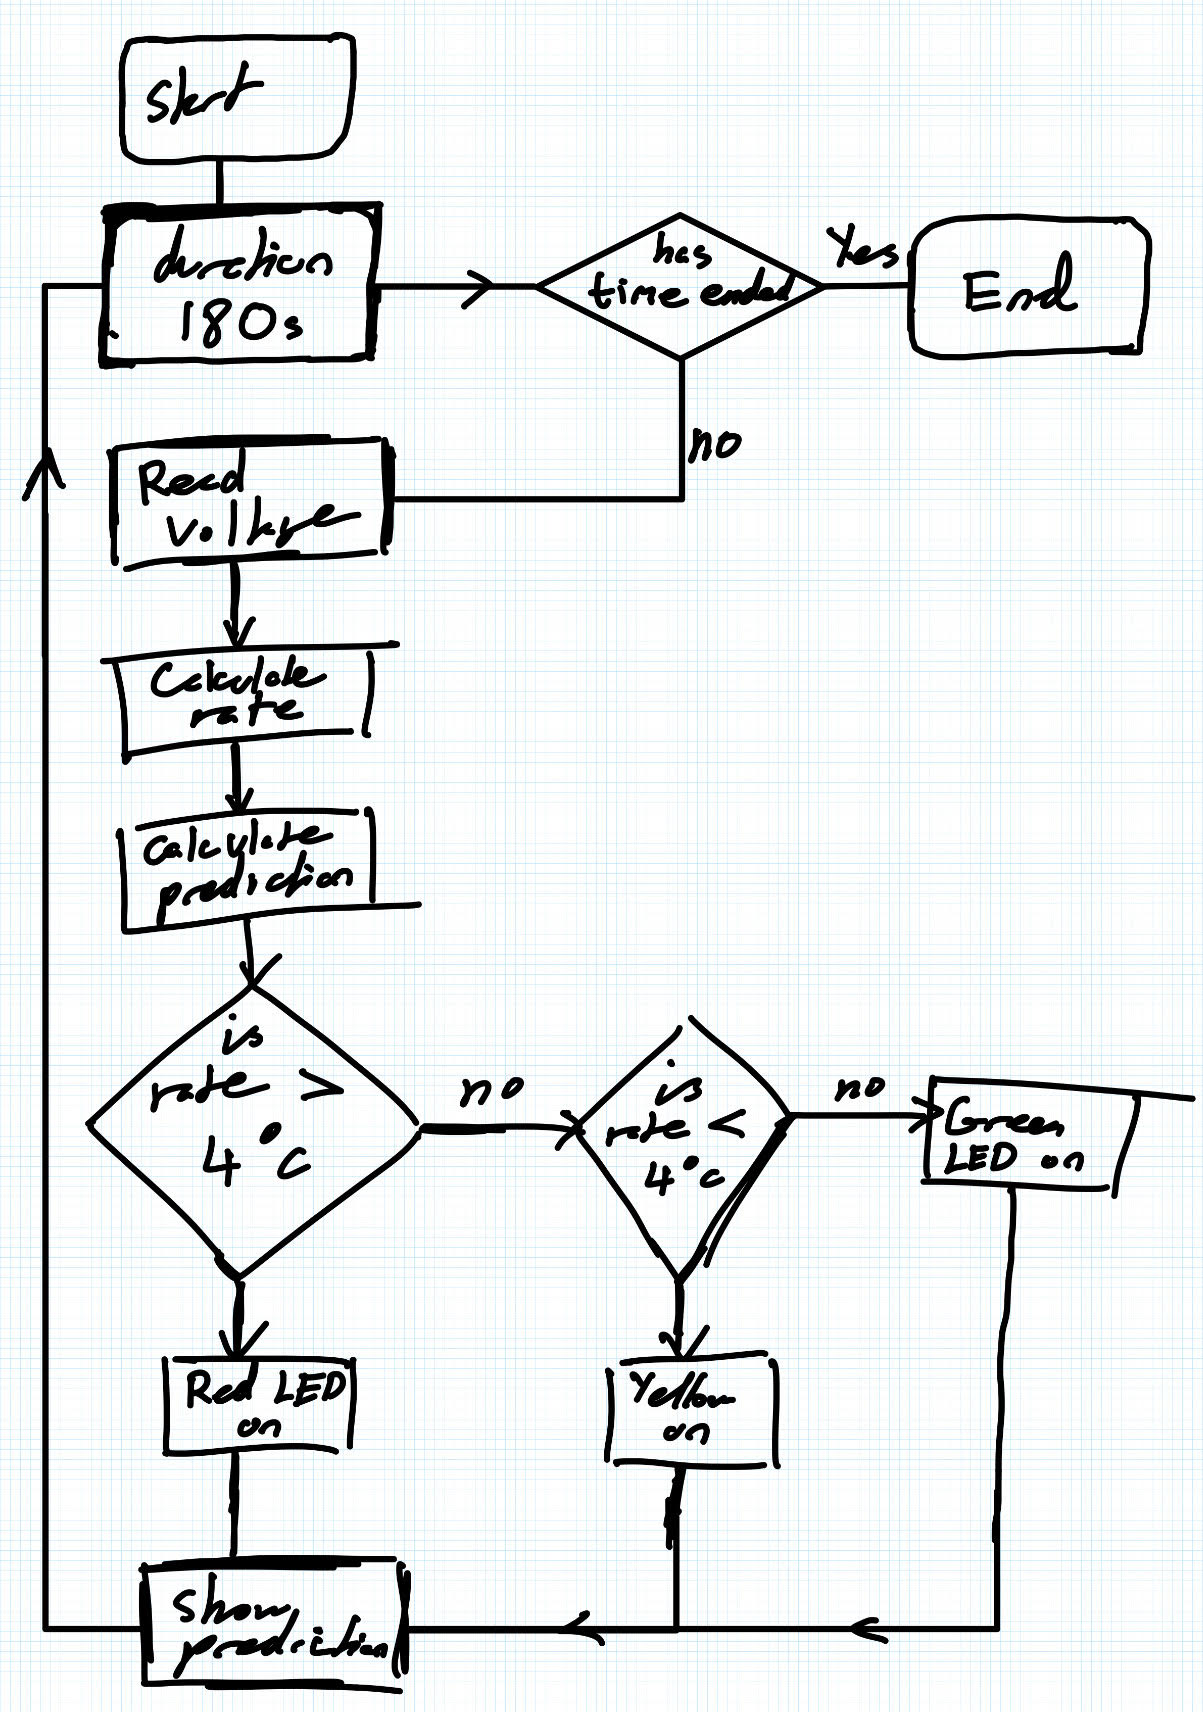 Start
duration
180s
has
time ended
Yes
End
no
Read
voltage
Calculate
rate
Calculate
prediction
is
rate >
4°C
no
is
rate <
4°C
no
Green
LED on
Red LED
on
Yellow
on
Show
prediction